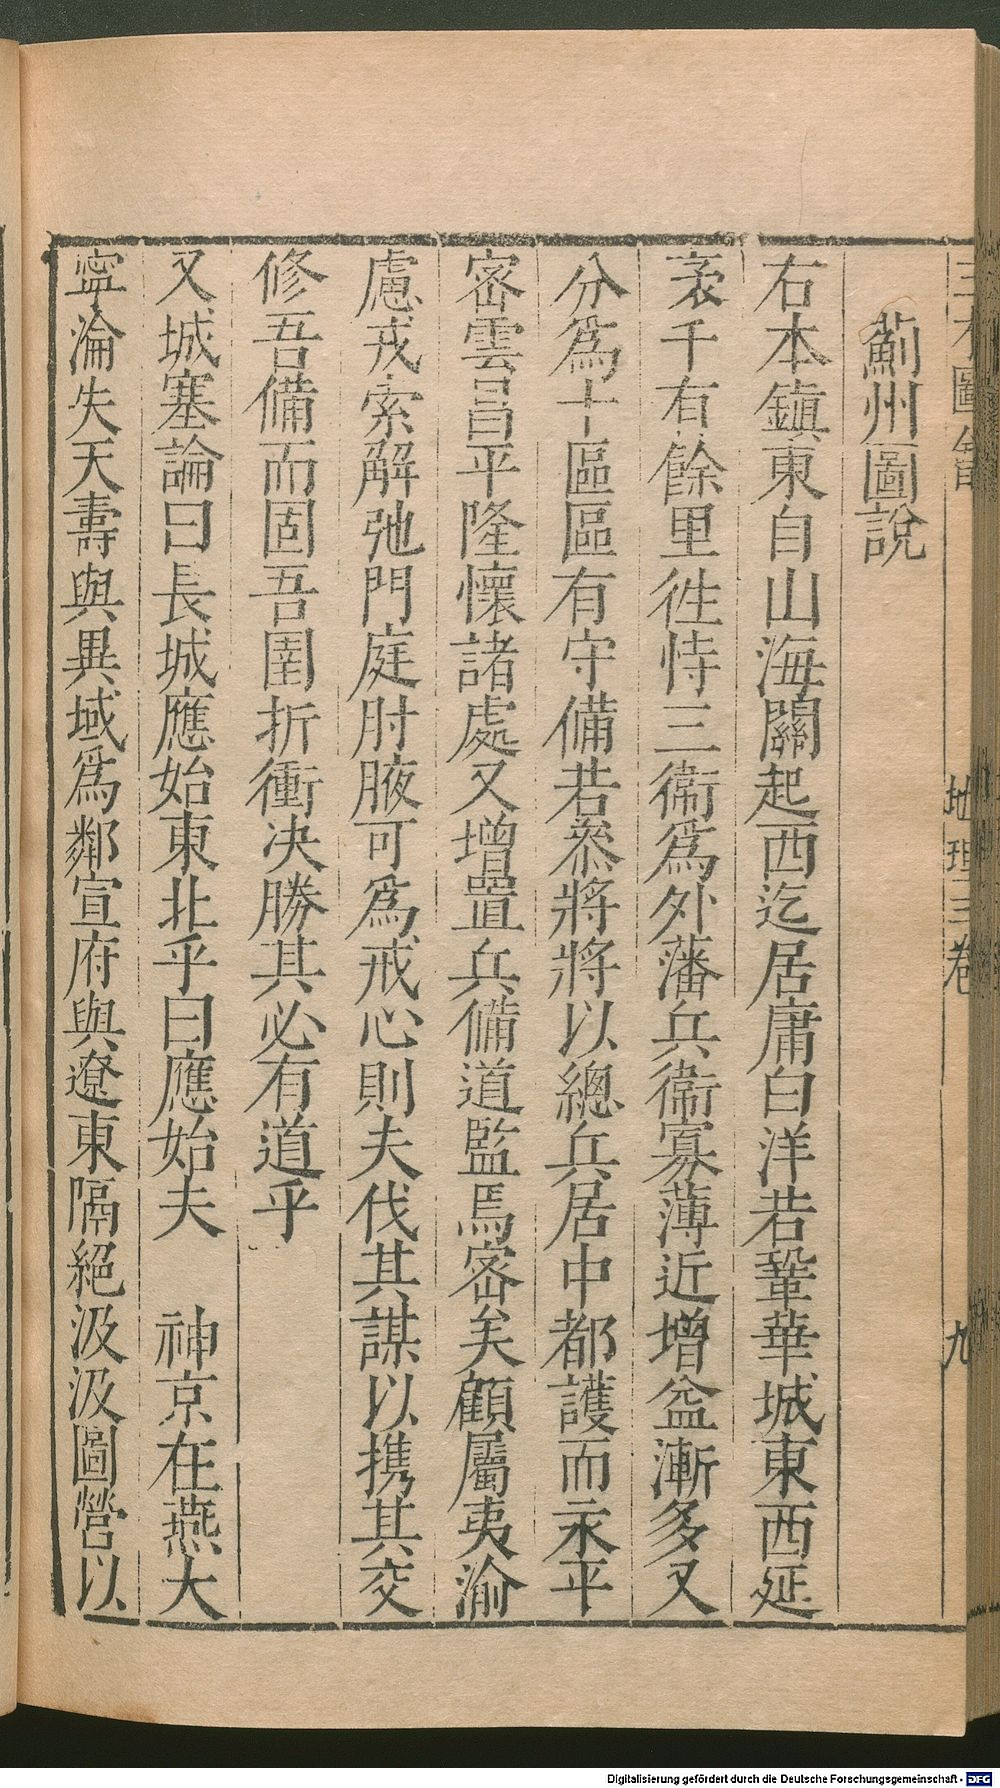 三才圖會 地理三卷 九
薊州圖說
右本鎮東自山海關起西迄居庸白洋若鞏華城東西延
袤千有餘里徃恃三衞爲外藩兵衞寡薄近增益漸多又
分爲十區區有守備若叅將將以總兵居中都護而永平
密雲昌平隆懷諸處又增置兵備道監焉密矣顧屬夷渝
慮戎索解弛門庭肘腋可爲戒心則夫伐其謀以携其交
修吾備而固吾圉折衝决勝其必有道乎
又城塞論曰長城應始東北乎曰應始夫 神京在燕大
寧淪失天壽與異域爲鄰宣府與遼東隔絕汲汲圖營以
Digitalisierung gefördert durch die Deutsche Forschungsgemeinschaft - DFG